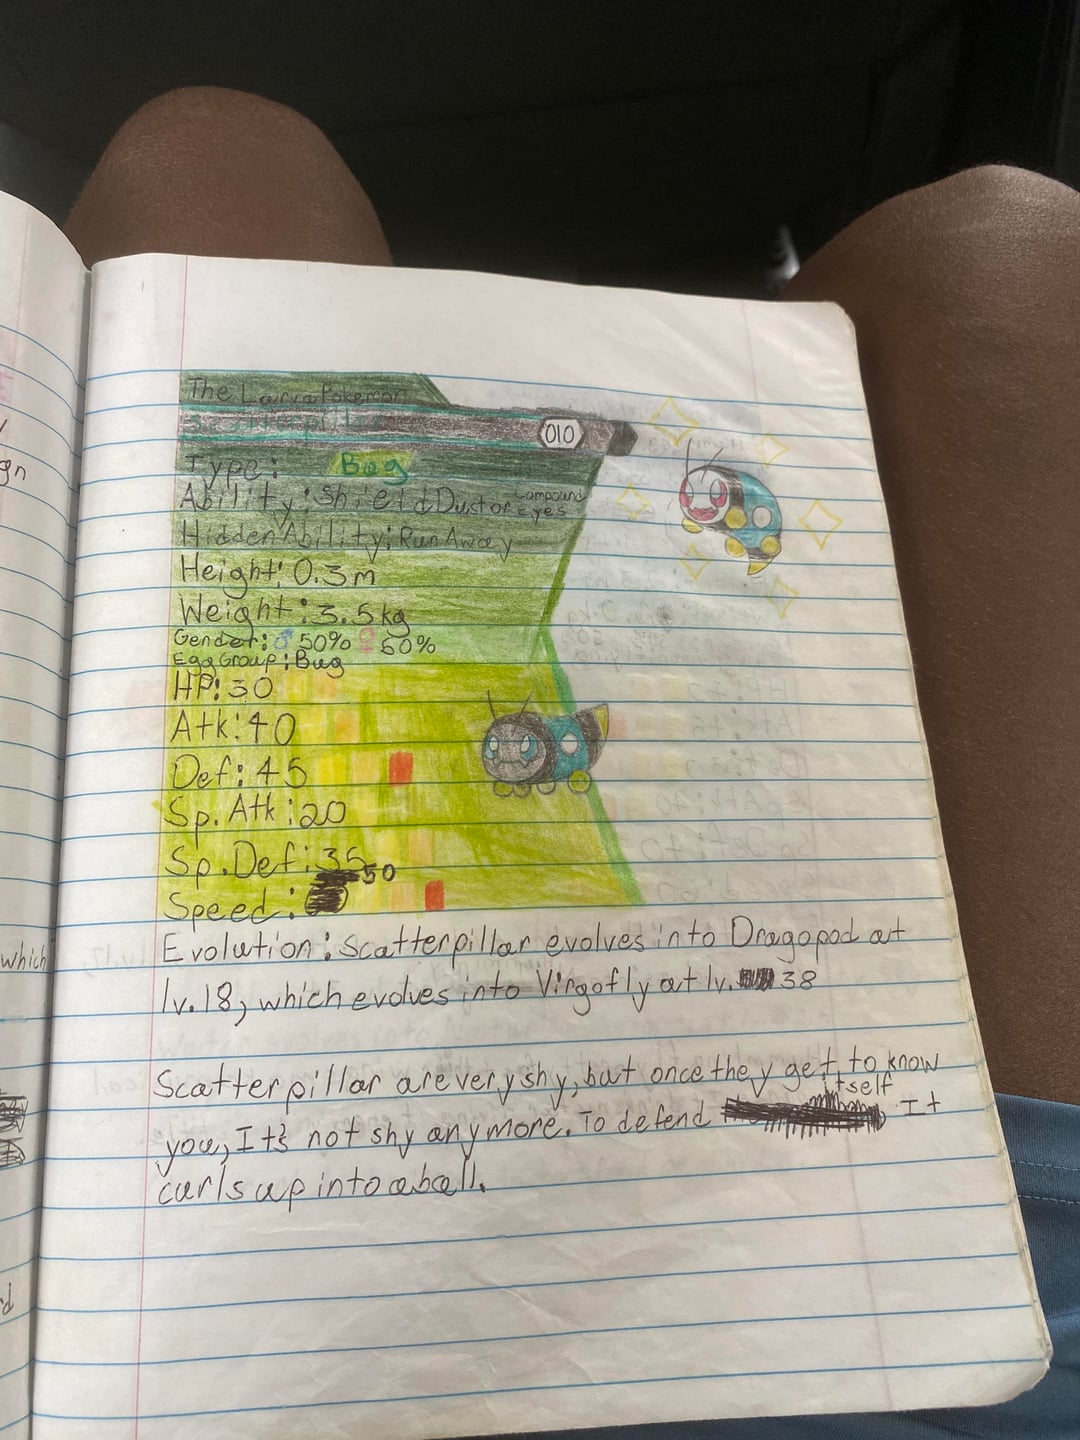 The Larva Pokemon
Scatterpillar
010
Type: Bug
Ability: Shield Dust or Compound Eyes
Hidden Ability: Run Away
Height: 0.3m
Weight: 3.5kg
Gender: ♂ 50% ♀ 50%
Egg Group: Bug
HP: 30
Atk: 40
Def: 45
Sp. Atk: 20
Sp. Def: 35
Speed: 50
Evolution: Scatterpillar evolves into Dragopod at
lv.18, which evolves into Virgofly at lv. 38
Scatterpillar are very shy, but once they get to know
you, It's not shy anymore. To defend itself It
curls up into a ball.
gn
which